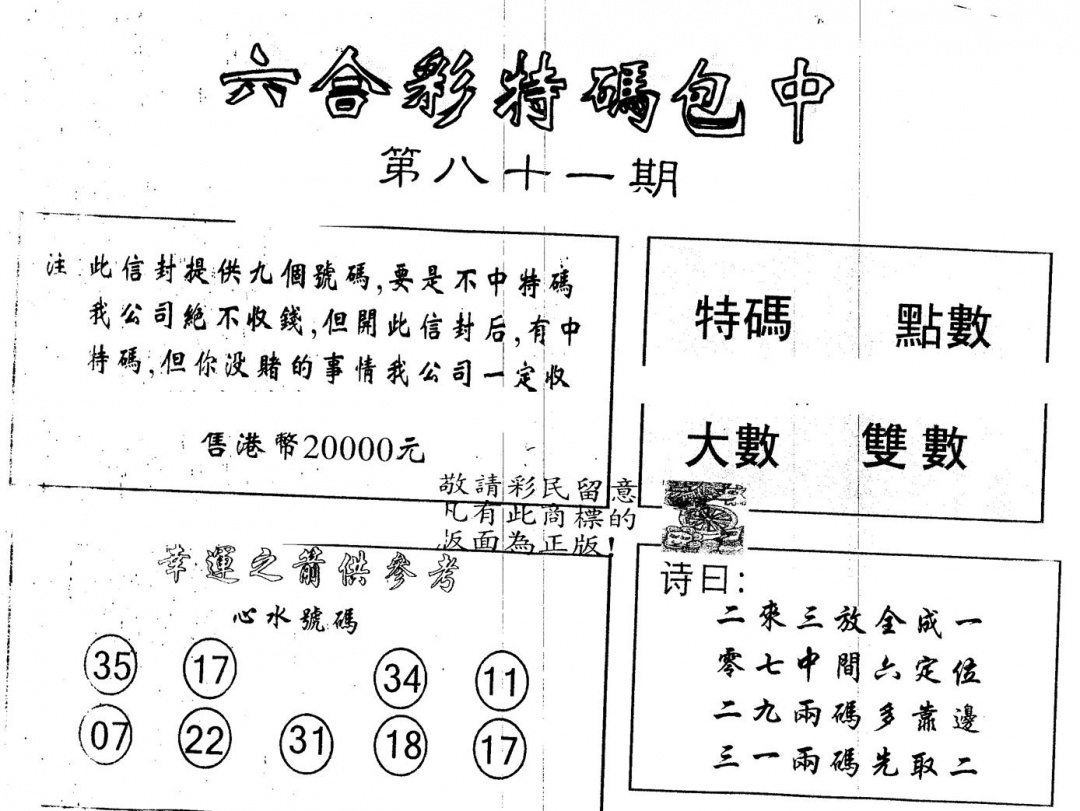 六合彩特碼包中
第八十一期
注:此信封提供九個號碼,要是不中特碼
我公司絕不收錢,但開此信封后,有中
特碼,但你没賭的事情我公司一定收
售港幣20000元
特碼 點數
大數 雙數
敬請彩民留意
凡有此商標的
版面為正版!
幸運之箭供參考
心水號碼
35 17 34 11
07 22 31 18 17
诗曰:
二來三放全成一
零七中間六定位
二九兩碼多靠邊
三一兩碼先取二